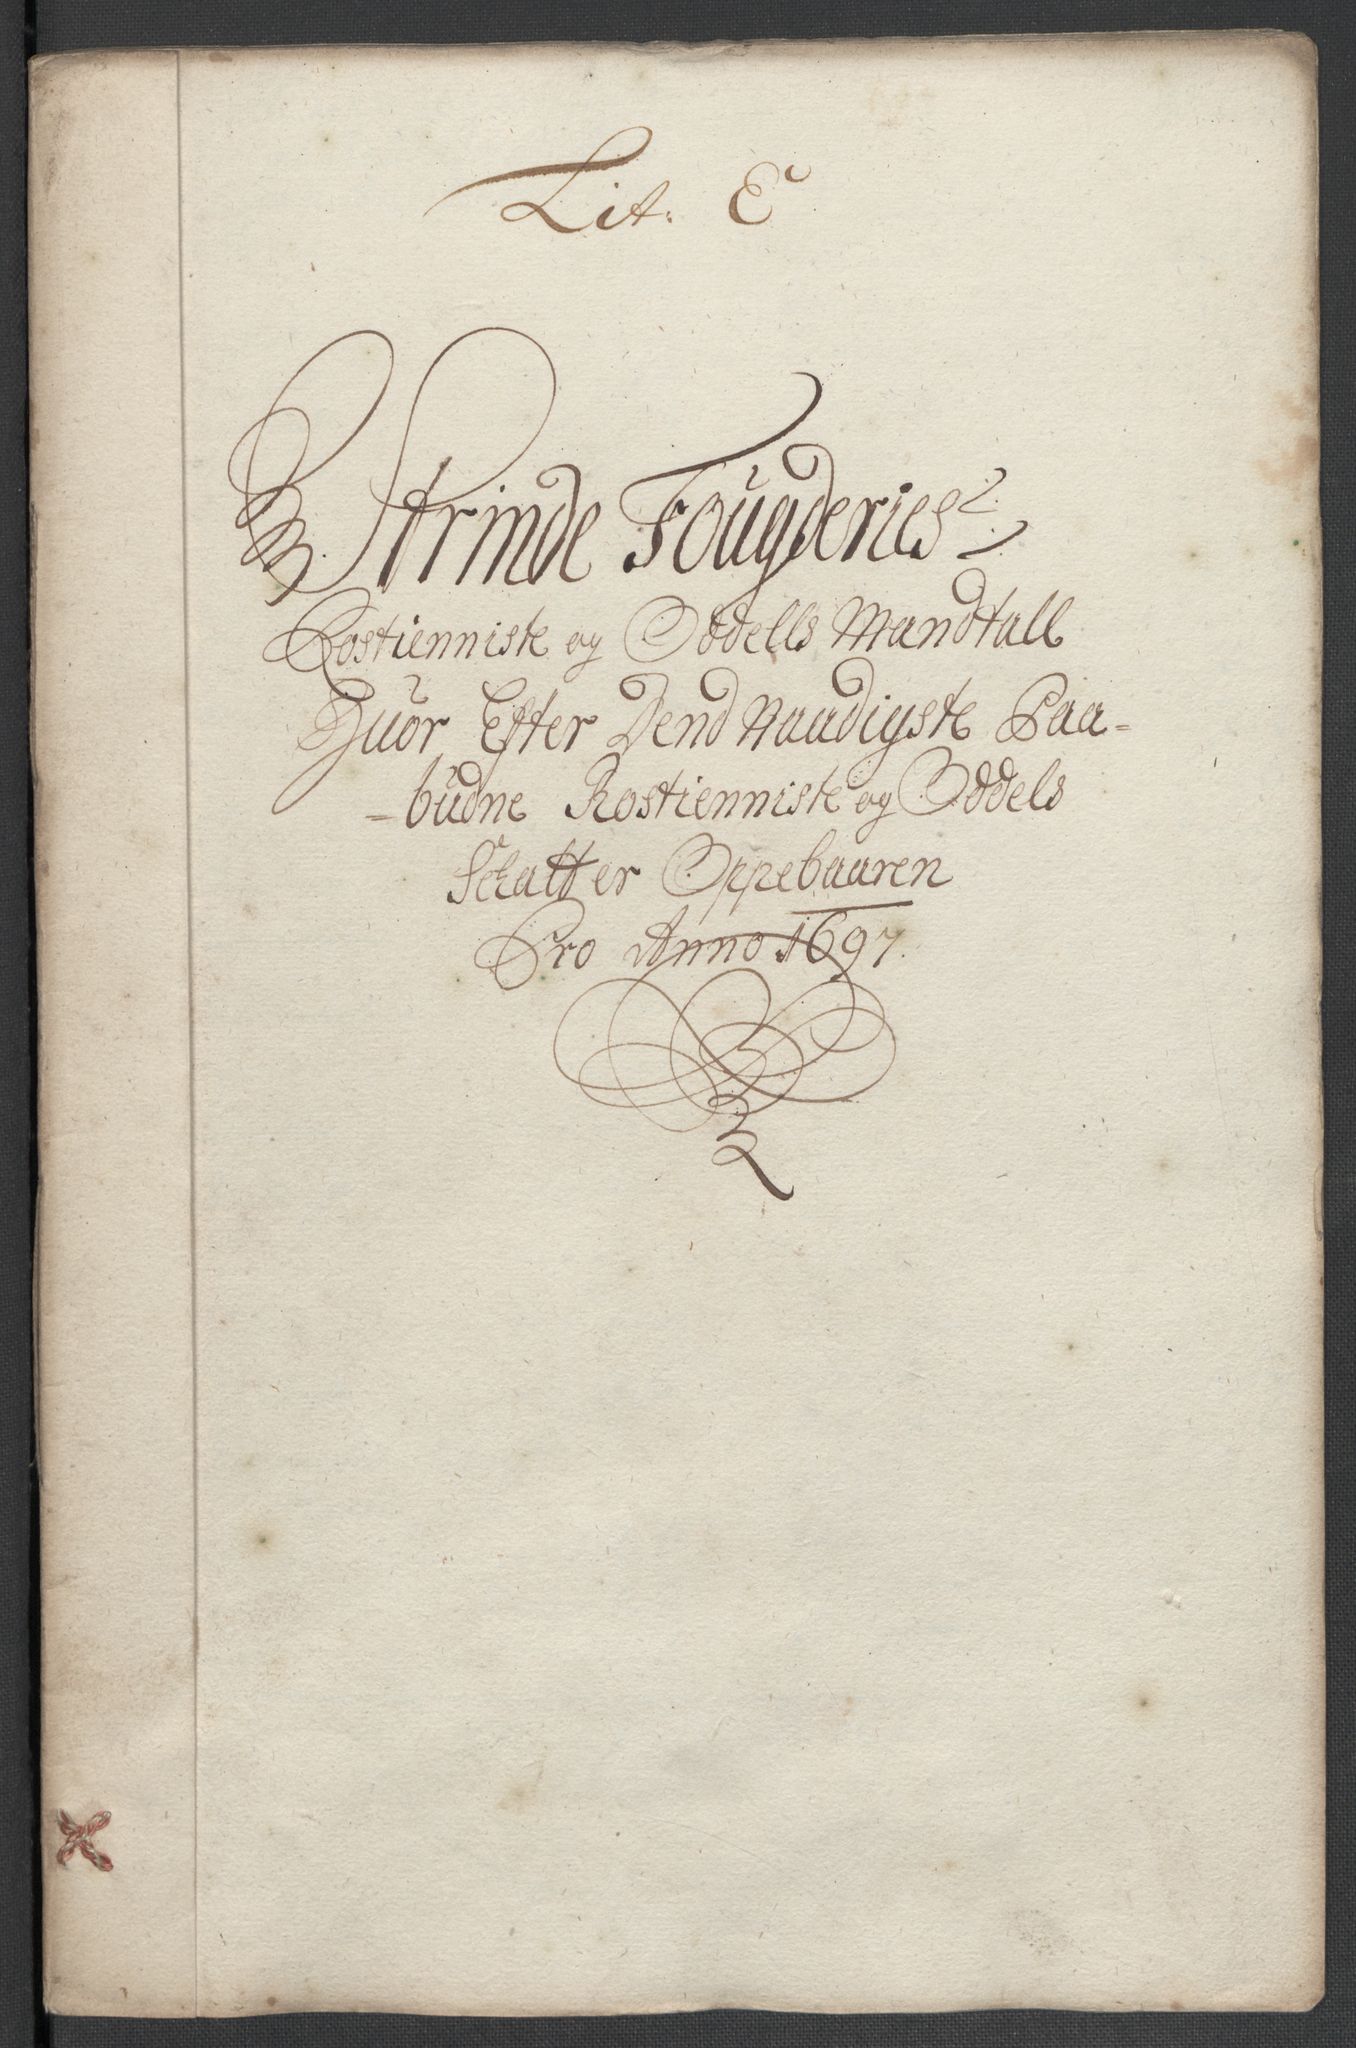 Lit: E
Strinde Fougderies
Rostienniste og Oddells Mandtall
Huor Efter Dend Naadigste Paa-
-budne Rostienniste og Oddels
Schatter Oppebaaren
Pro Anno 1697.